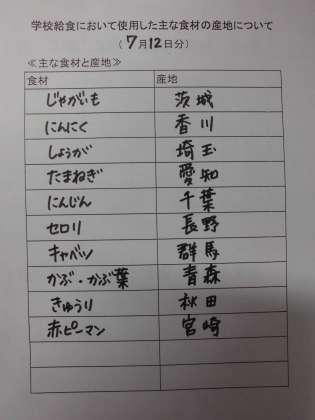 学校給食において使用した主な食材の産地について
(7月12日分)
≪主な食材と産地≫
食材 産地
じゃがいも 茨城
にんにく 香川
しょうが 埼玉
たまねぎ 愛知
にんじん 千葉
セロリ 長野
キャベツ 群馬
かぶ・かぶ葉 青森
きゅうり 秋田
赤ピーマン 宮崎